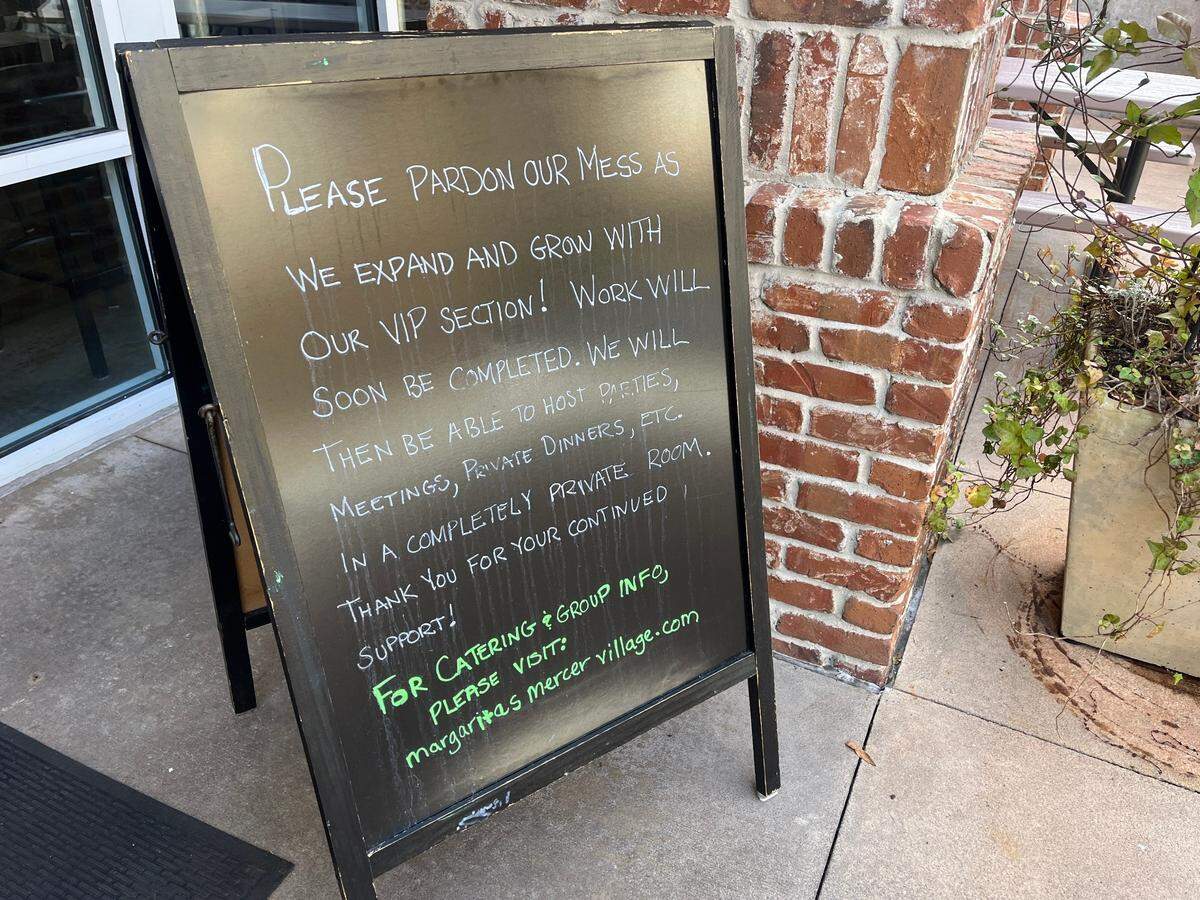 PLEASE PARDON OUR MESS AS
WE EXPAND AND GROW WITH
OUR VIP SECTION! WORK WILL
SOON BE COMPLETED. WE WILL
THEN BE ABLE TO HOST PARTIES,
MEETINGS, PRIVATE DINNERS, ETC.
IN A COMPLETELY PRIVATE ROOM.
THANK YOU FOR YOUR CONTINUED
SUPPORT!
FOR CATERING & GROUP INFO,
PLEASE VISIT:
margaritas mercer village.com